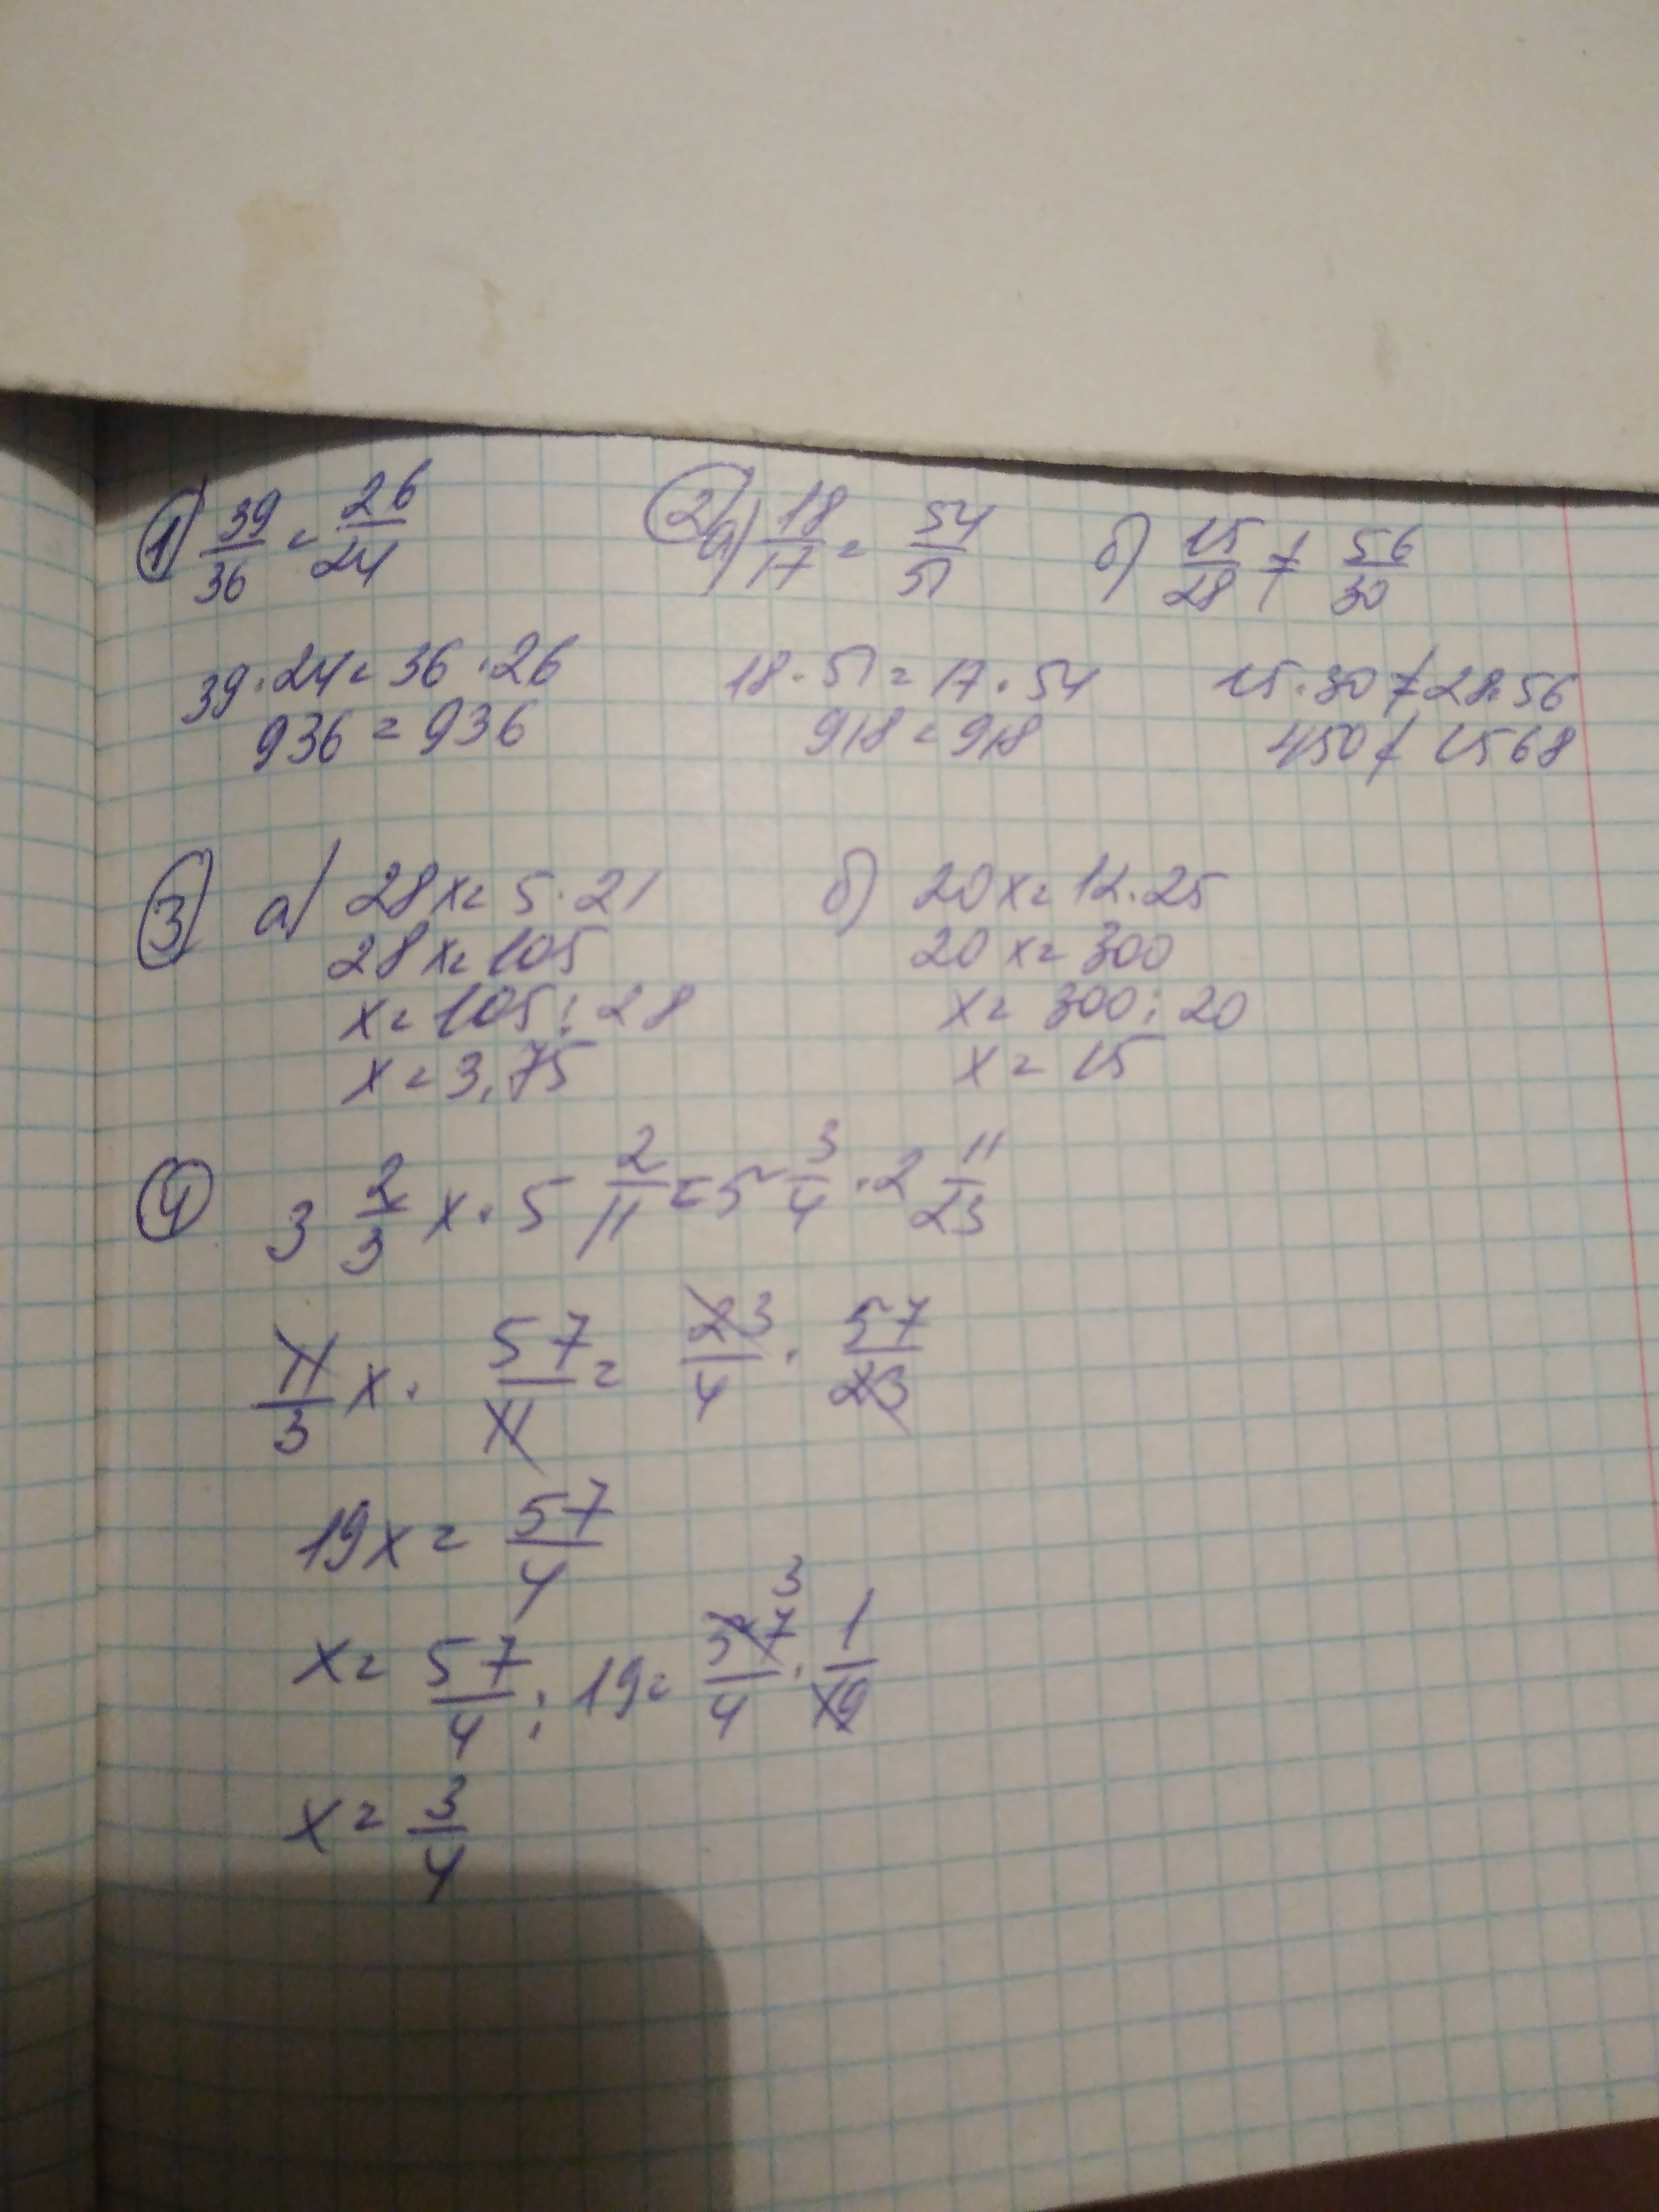 1) 39/36 = 26/24
39·24=36·26
936=936
2) а) 18/17 = 54/51
18·51=17·54
918=918
б) 15/28 ≠ 56/30
15·30≠28·56
450≠1568
3) а) 28x=5·21
28x=105
x=105:28
x=3,75
б) 20x=12·25
20x=300
x=300:20
x=15
4) 3 2/3 x·5 2/11=5 3/4·2 11/23
11/3 x·57/11=23/4·57/23
19x=57/4
x=57/4:19=57/4·1/19 3
x=3/4